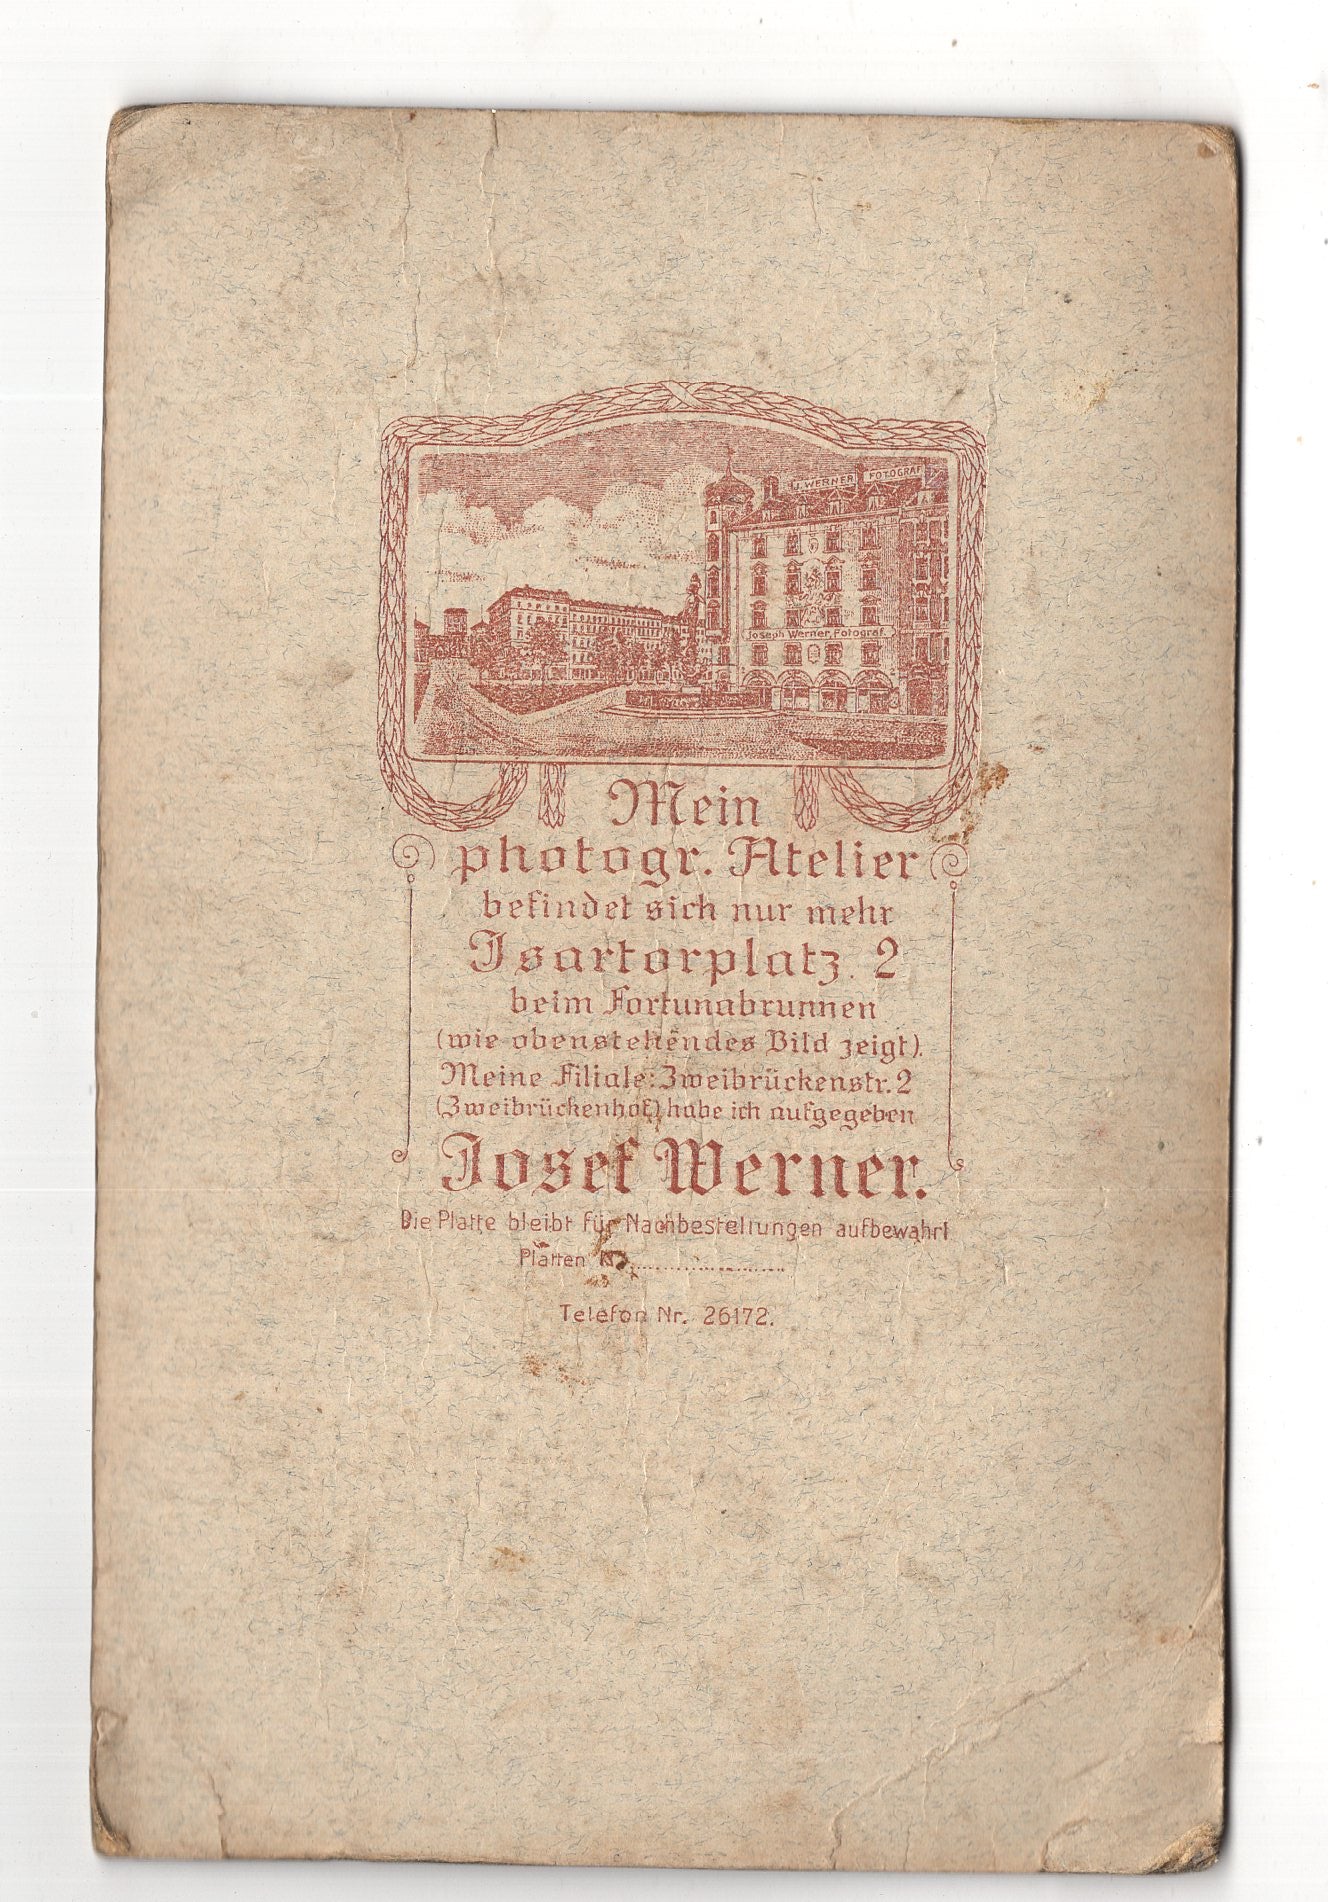 J. WERNER FOTOGRAF
Joseph Werner, Fotograf.
Mein
photogr. Atelier
befindet sich nur mehr
Isartorplatz. 2
beim Fortunabrunnen
(wie obenstehendes Bild zeigt).
Meine Filiale: Zweibrückenstr. 2
(Zweibrückenhof) habe ich aufgegeben
Josef Werner.
Die Platte bleibt für Nachbestellungen aufbewahrt
Platten No.....................
Telefon Nr. 26172.